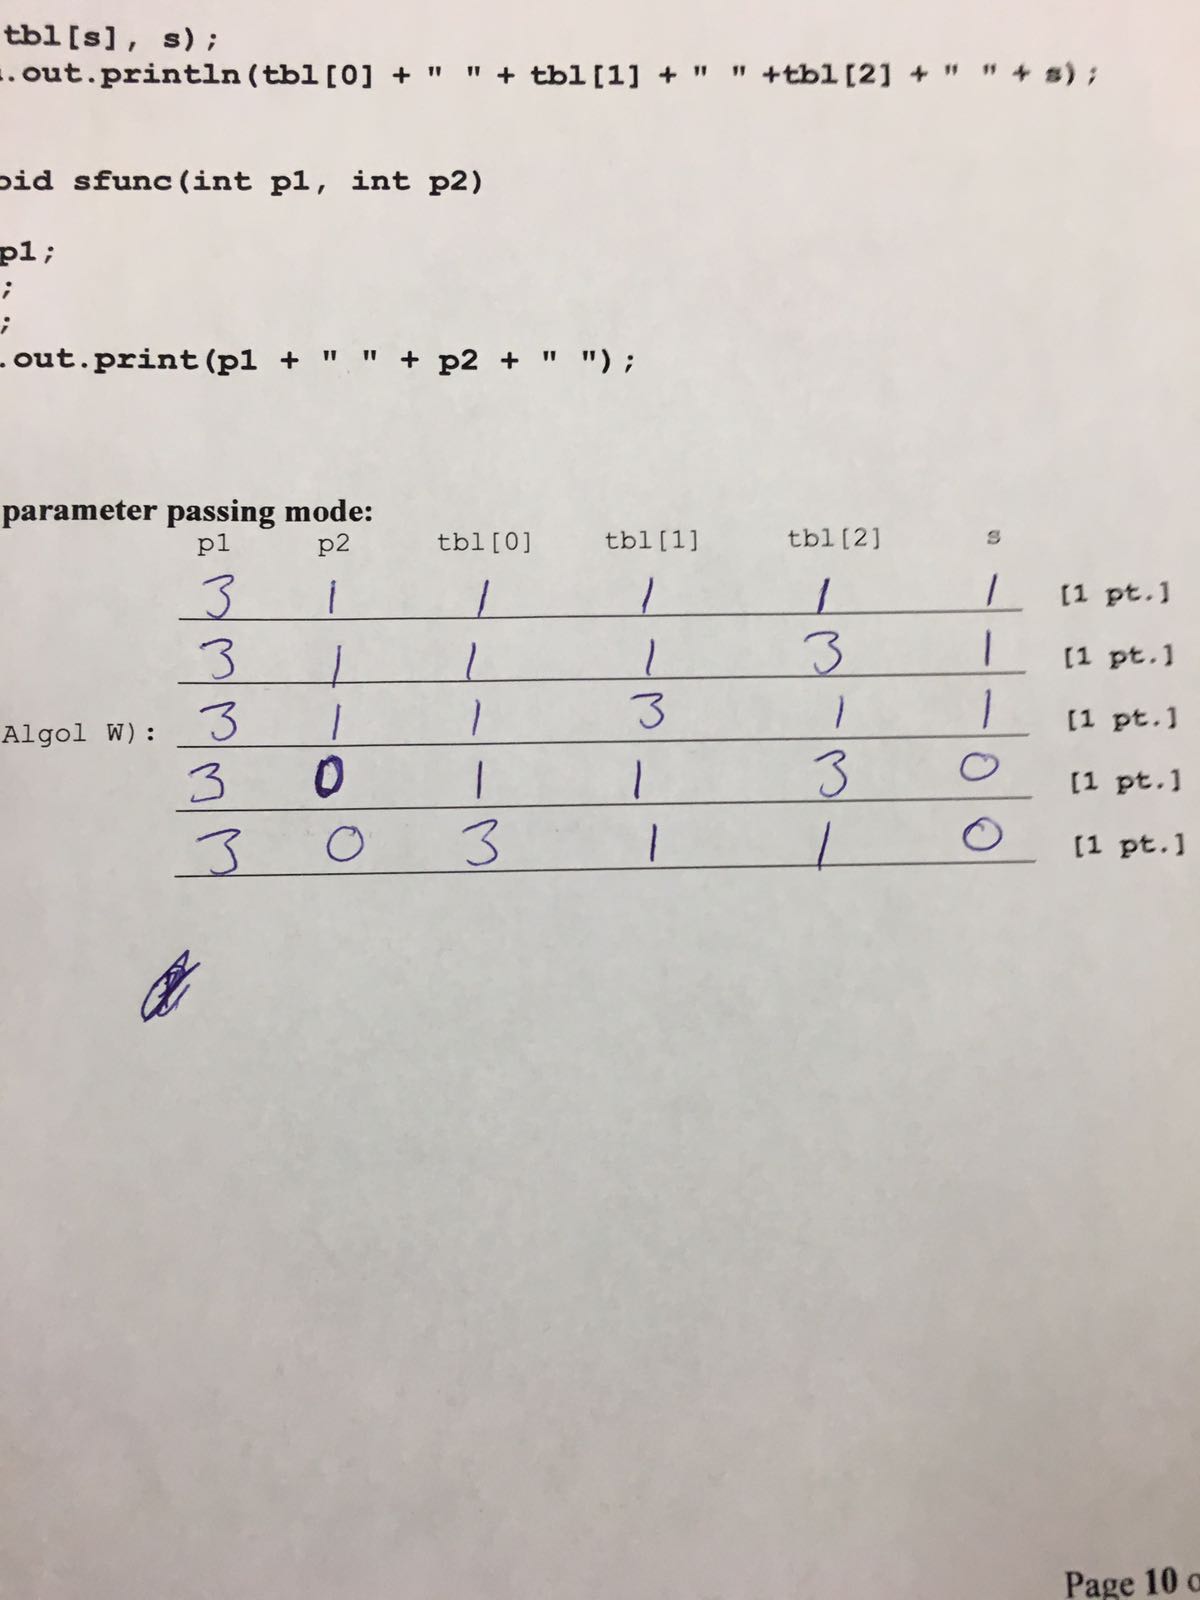 tbl[s], s);
.out.println(tbl[0] + " " + tbl[1] + " " +tbl[2] + " " + s);
oid sfunc(int p1, int p2)
p1;
;
;
.out.print(p1 + " " + p2 + " ");
parameter passing mode:
p1 p2 tbl[0] tbl[1] tbl[2] s
3 1 1 1 1 1 [1 pt.]
3 1 1 1 3 1 [1 pt.]
Algol W): 3 1 1 3 1 1 [1 pt.]
3 0 1 1 3 0 [1 pt.]
3 0 3 1 1 0 [1 pt.]
Page 10 o